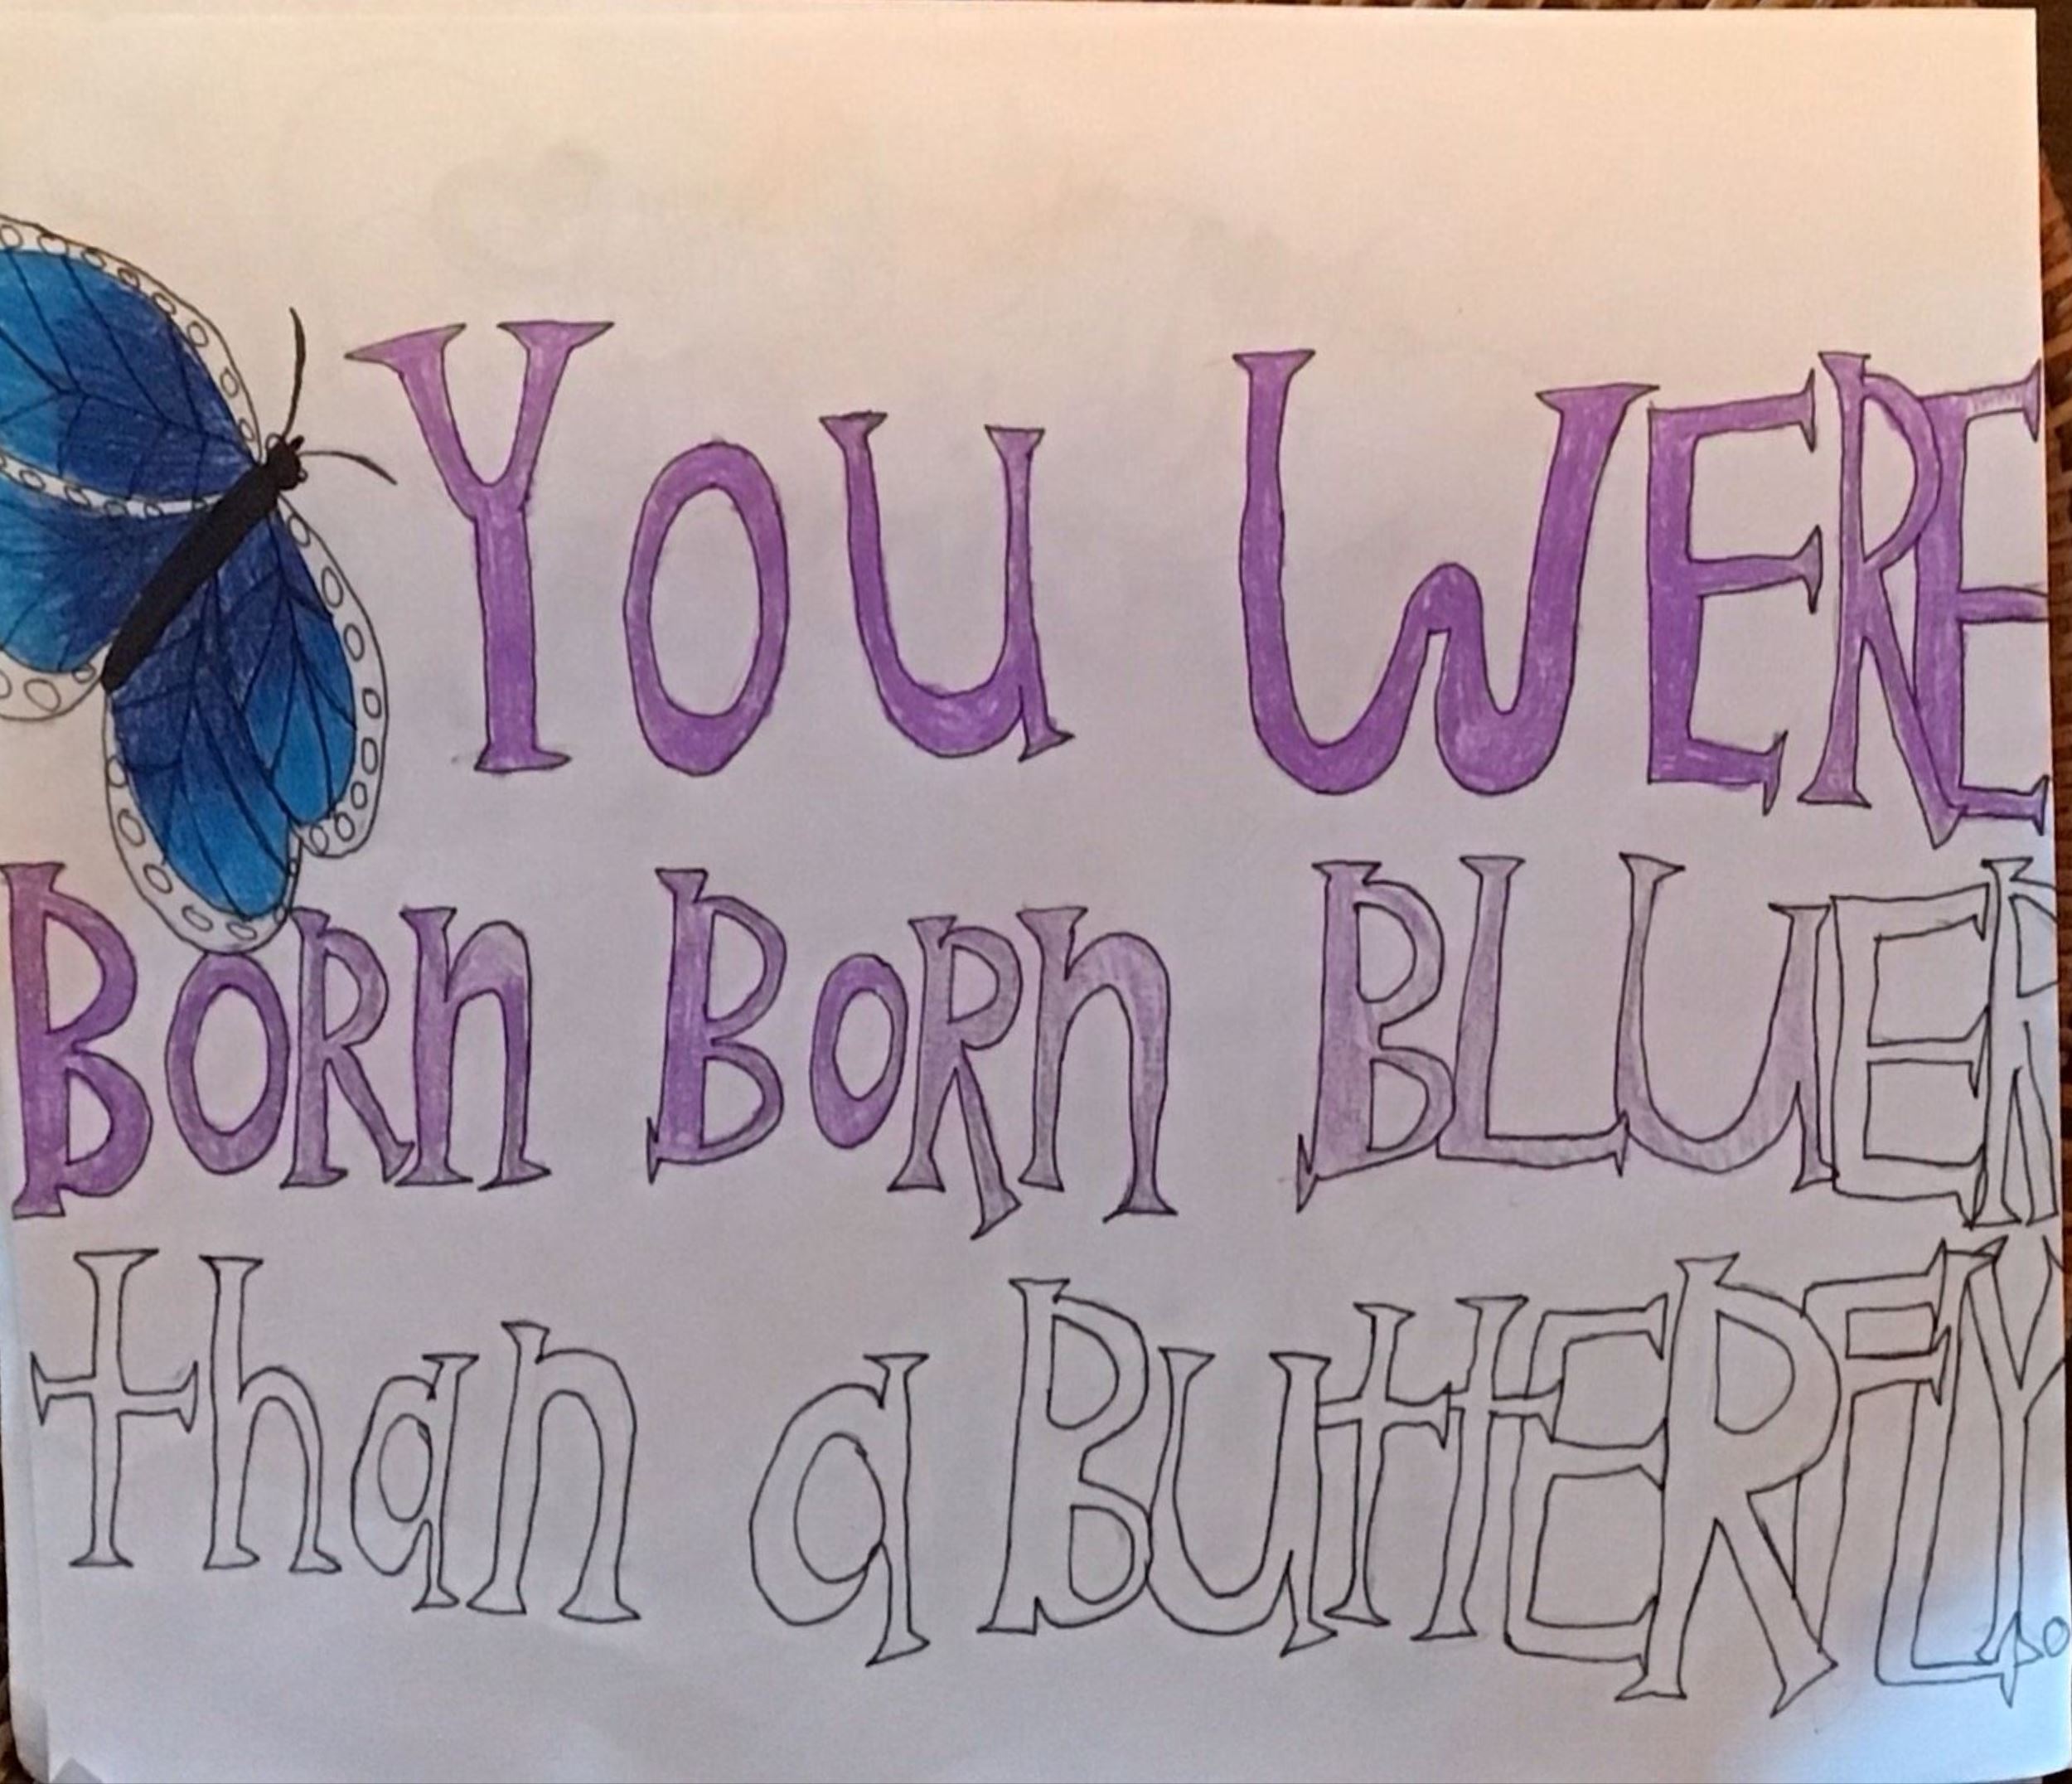 YOU WERE
BORN BORN BLUER
than a BUttERFLY.